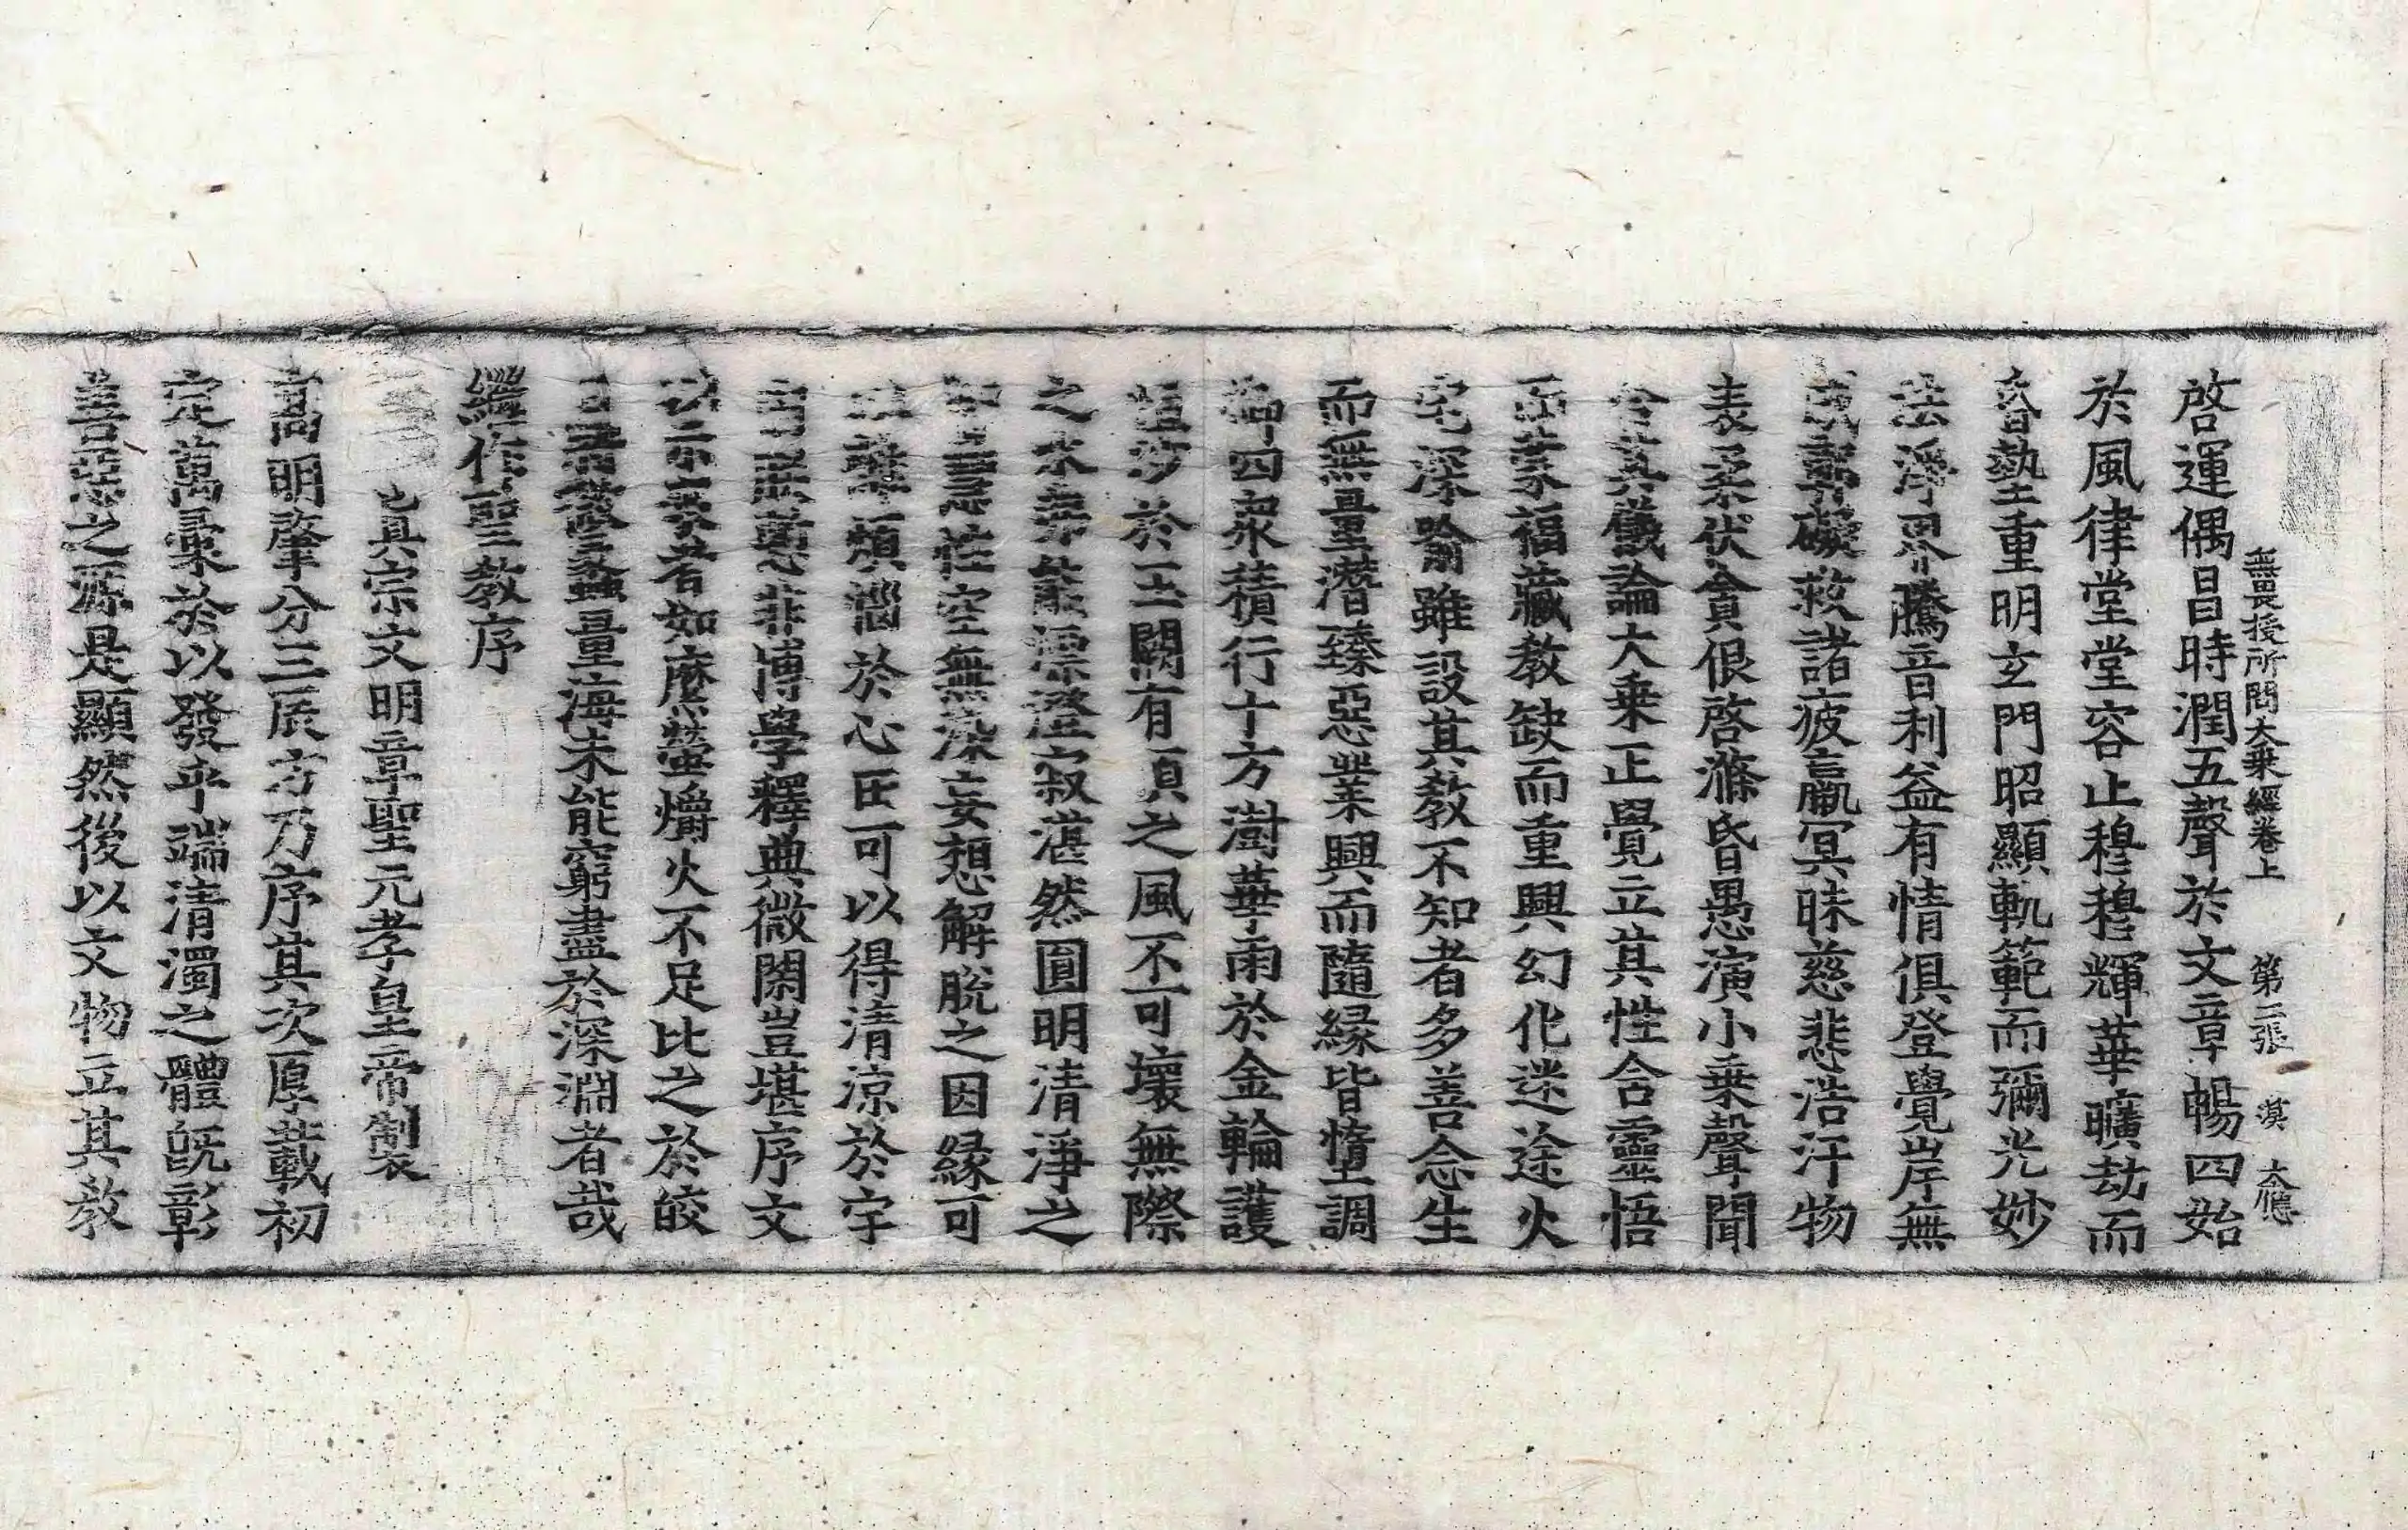 無畏授所問大乗經卷上 第二張 漠 大應
啓運偶昌時潤五聲於文章暢四始
於風律堂堂容止穆穆輝華曠劫而
昏墊重明玄門昭顯軌範而彌光妙
法淨界騰音利益有情俱登覺岸無
礙救諸疲羸冥昧慈悲浩汗物
表柔伏貪很啓滌昏愚演小乗聲聞
合其儀論大乗正覺立其性含靈悟
而蒙福藏教缺而重興幻化迷途火
宅深喻雖設其教不知者多善念生
而無量潜臻惡業興而隨緣皆墮調
御四衆積行十方澍華雨於金輪護
恒沙於玉闕有頂之風不可壞無際
之水弗能漂澄寂湛然圓明清淨之
空無染妄想解脫之因緣可
煩惱於心田可以得清凉於宇
非博學釋典微閑豈堪序文
以示来者如麽螢爝火不足比之於皎
日量海未能窮盡於深淵者哉
繼作聖教序
真宗文明章聖元孝皇帝製
高明肇分三辰方乃序其次厚載初
定萬彙於以發乎端清濁之體旣彰
善惡之源是顯然後以文物立其教